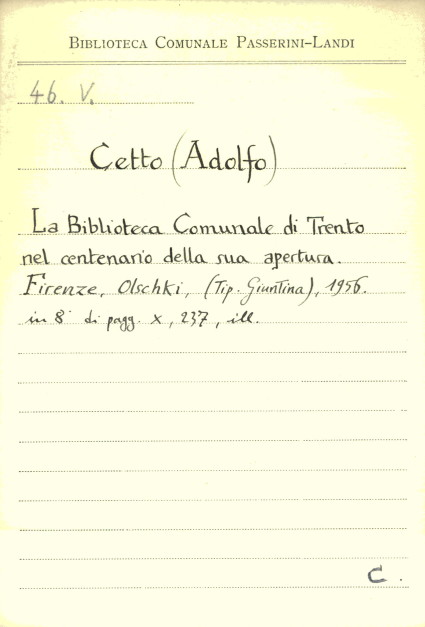 Biblioteca Comunale Passerini-Landi
46. V.
Cetto (Adolfo)
La Biblioteca Comunale di Trento
nel centenario della sua apertura.
Firenze, Olschki, (Tip. Giuntina), 1956.
in 8° di pagg. X, 237, ill.
C.